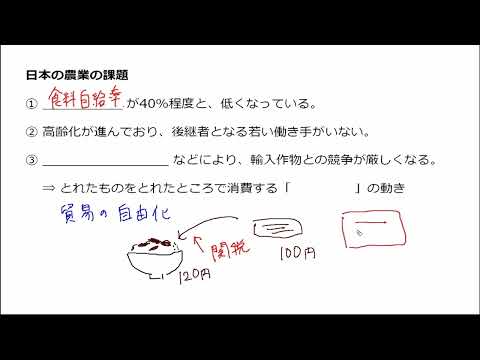 日本の農業の課題
① 食料自給率 が40%程度と、低くなっている。
② 高齢化が進んでおり、後継者となる若い働き手がいない。
③ などにより、輸入作物との競争が厳しくなる。
⇒ とれたものをとれたところで消費する「 」の動き
貿易の自由化
関税
100円
120円